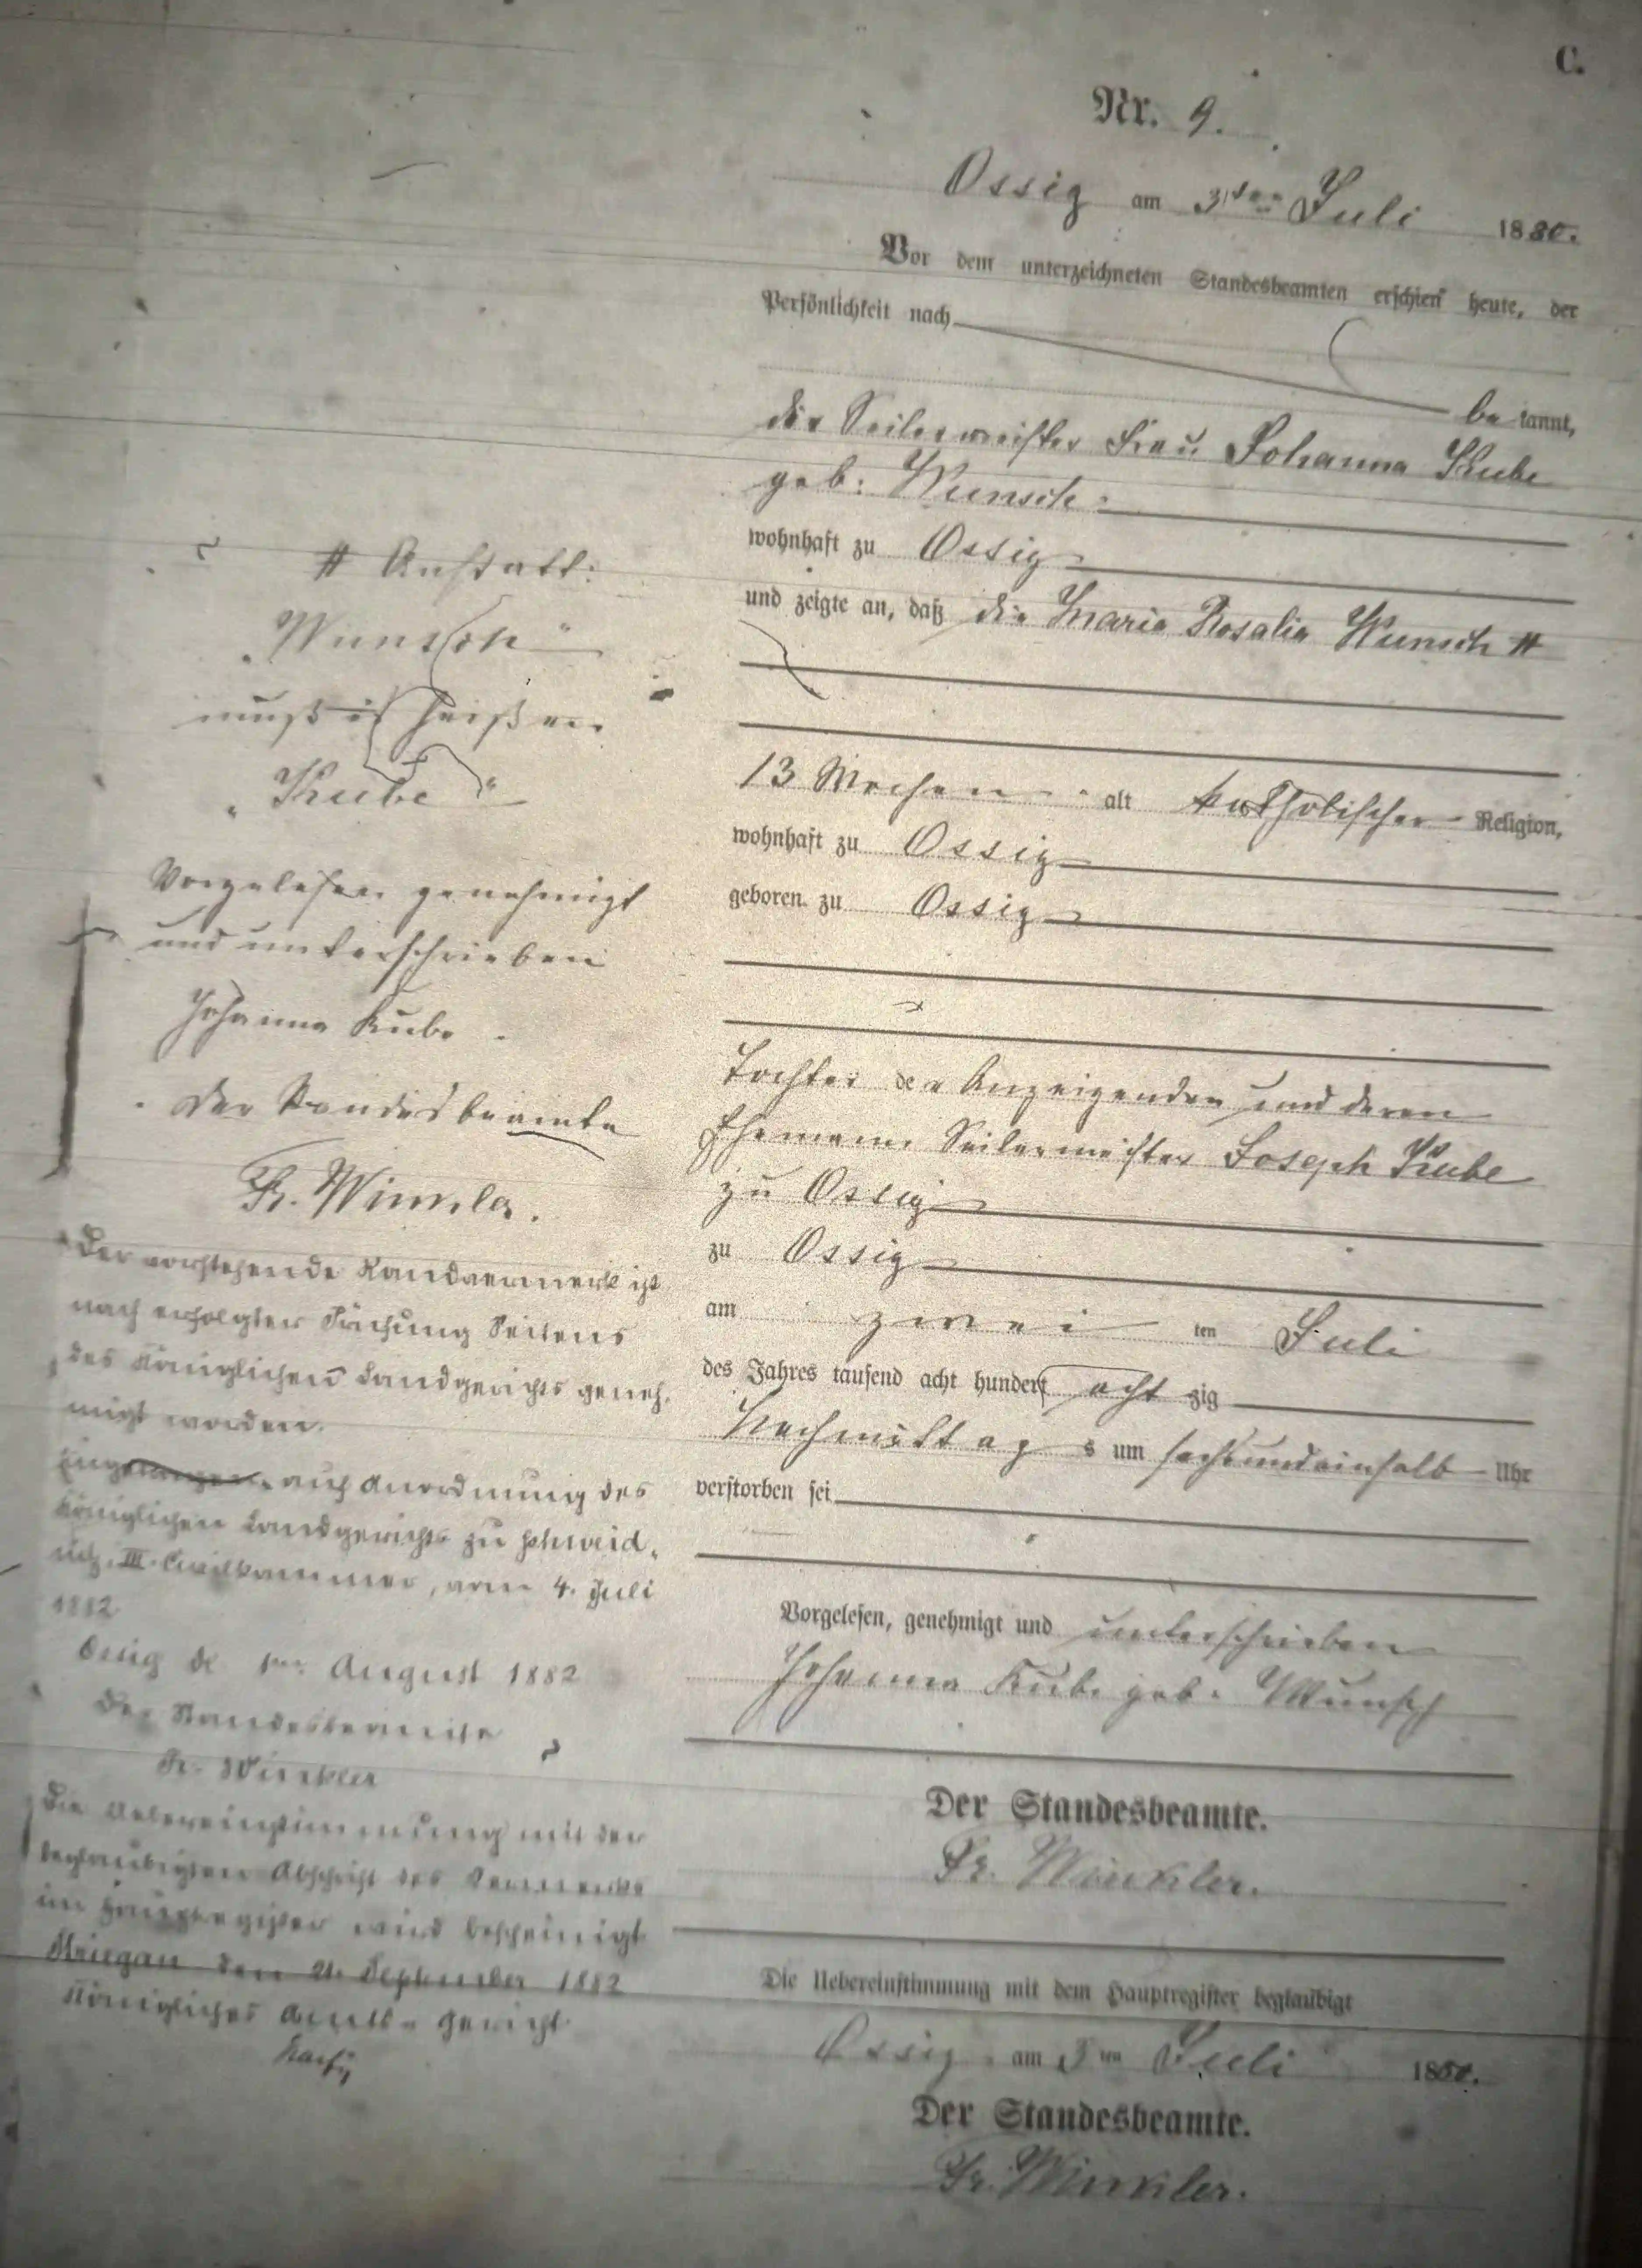 C.
Nr. 9.
Ossig am 3ten Juli 1880.
Vor dem unterzeichneten Standesbeamten erschien heute, der
Persönlichkeit nach
be kannt,
die Seilermeister Frau Johanna Kube
geb: Wunsch
wohnhaft zu Ossig
und zeigte an, daß die Maria Rosalia Wunsch #
13 Wochen alt katholischer Religion,
wohnhaft zu Ossig
geboren zu Ossig
Tochter der Anzeigenden und deren
Ehemann Seilermeister Joseph Kube
zu Ossig
zu Ossig
am zwei ten Juli
des Jahres tausend acht hundert acht zig
Nachmittag s um sechsundeinhalb Uhr
verstorben sei
Vorgelesen, genehmigt und unterschrieben
Johanna Kube geb. Wunsch
Der Standesbeamte.
Fr. Winkler.
Die Uebereinstimmung mit dem Hauptregister beglaubigt
Ossig am 3ten Juli 1880.
Der Standesbeamte.
Fr. Winkler.
# Anstatt:
„Wunsch“
muß es heißen
„Kube“
Vorgelesen genehmigt
und unterschrieben
Johanna Kube
Der Standesbeamte
Fr. Winkler.
Der vorstehende Randvermerk ist
nach erfolgter Prüfung Seitens
des Königlichen Landgerichts geneh-
migt worden.
auf Anordnung des
Königlichen Landgerichts zu Schweid-
nitz. III. Civilkammer, vom 4. Juli
1882
Ossig d. 1ten August 1882
Der Standesbeamte
Fr. Winkler
Die Uebereinstimmung mit der
beglaubigten Abschrift des Vermerks
im Hauptregister wird bescheinigt
Striegau den 21. September 1882
Königliches Amts-Gericht